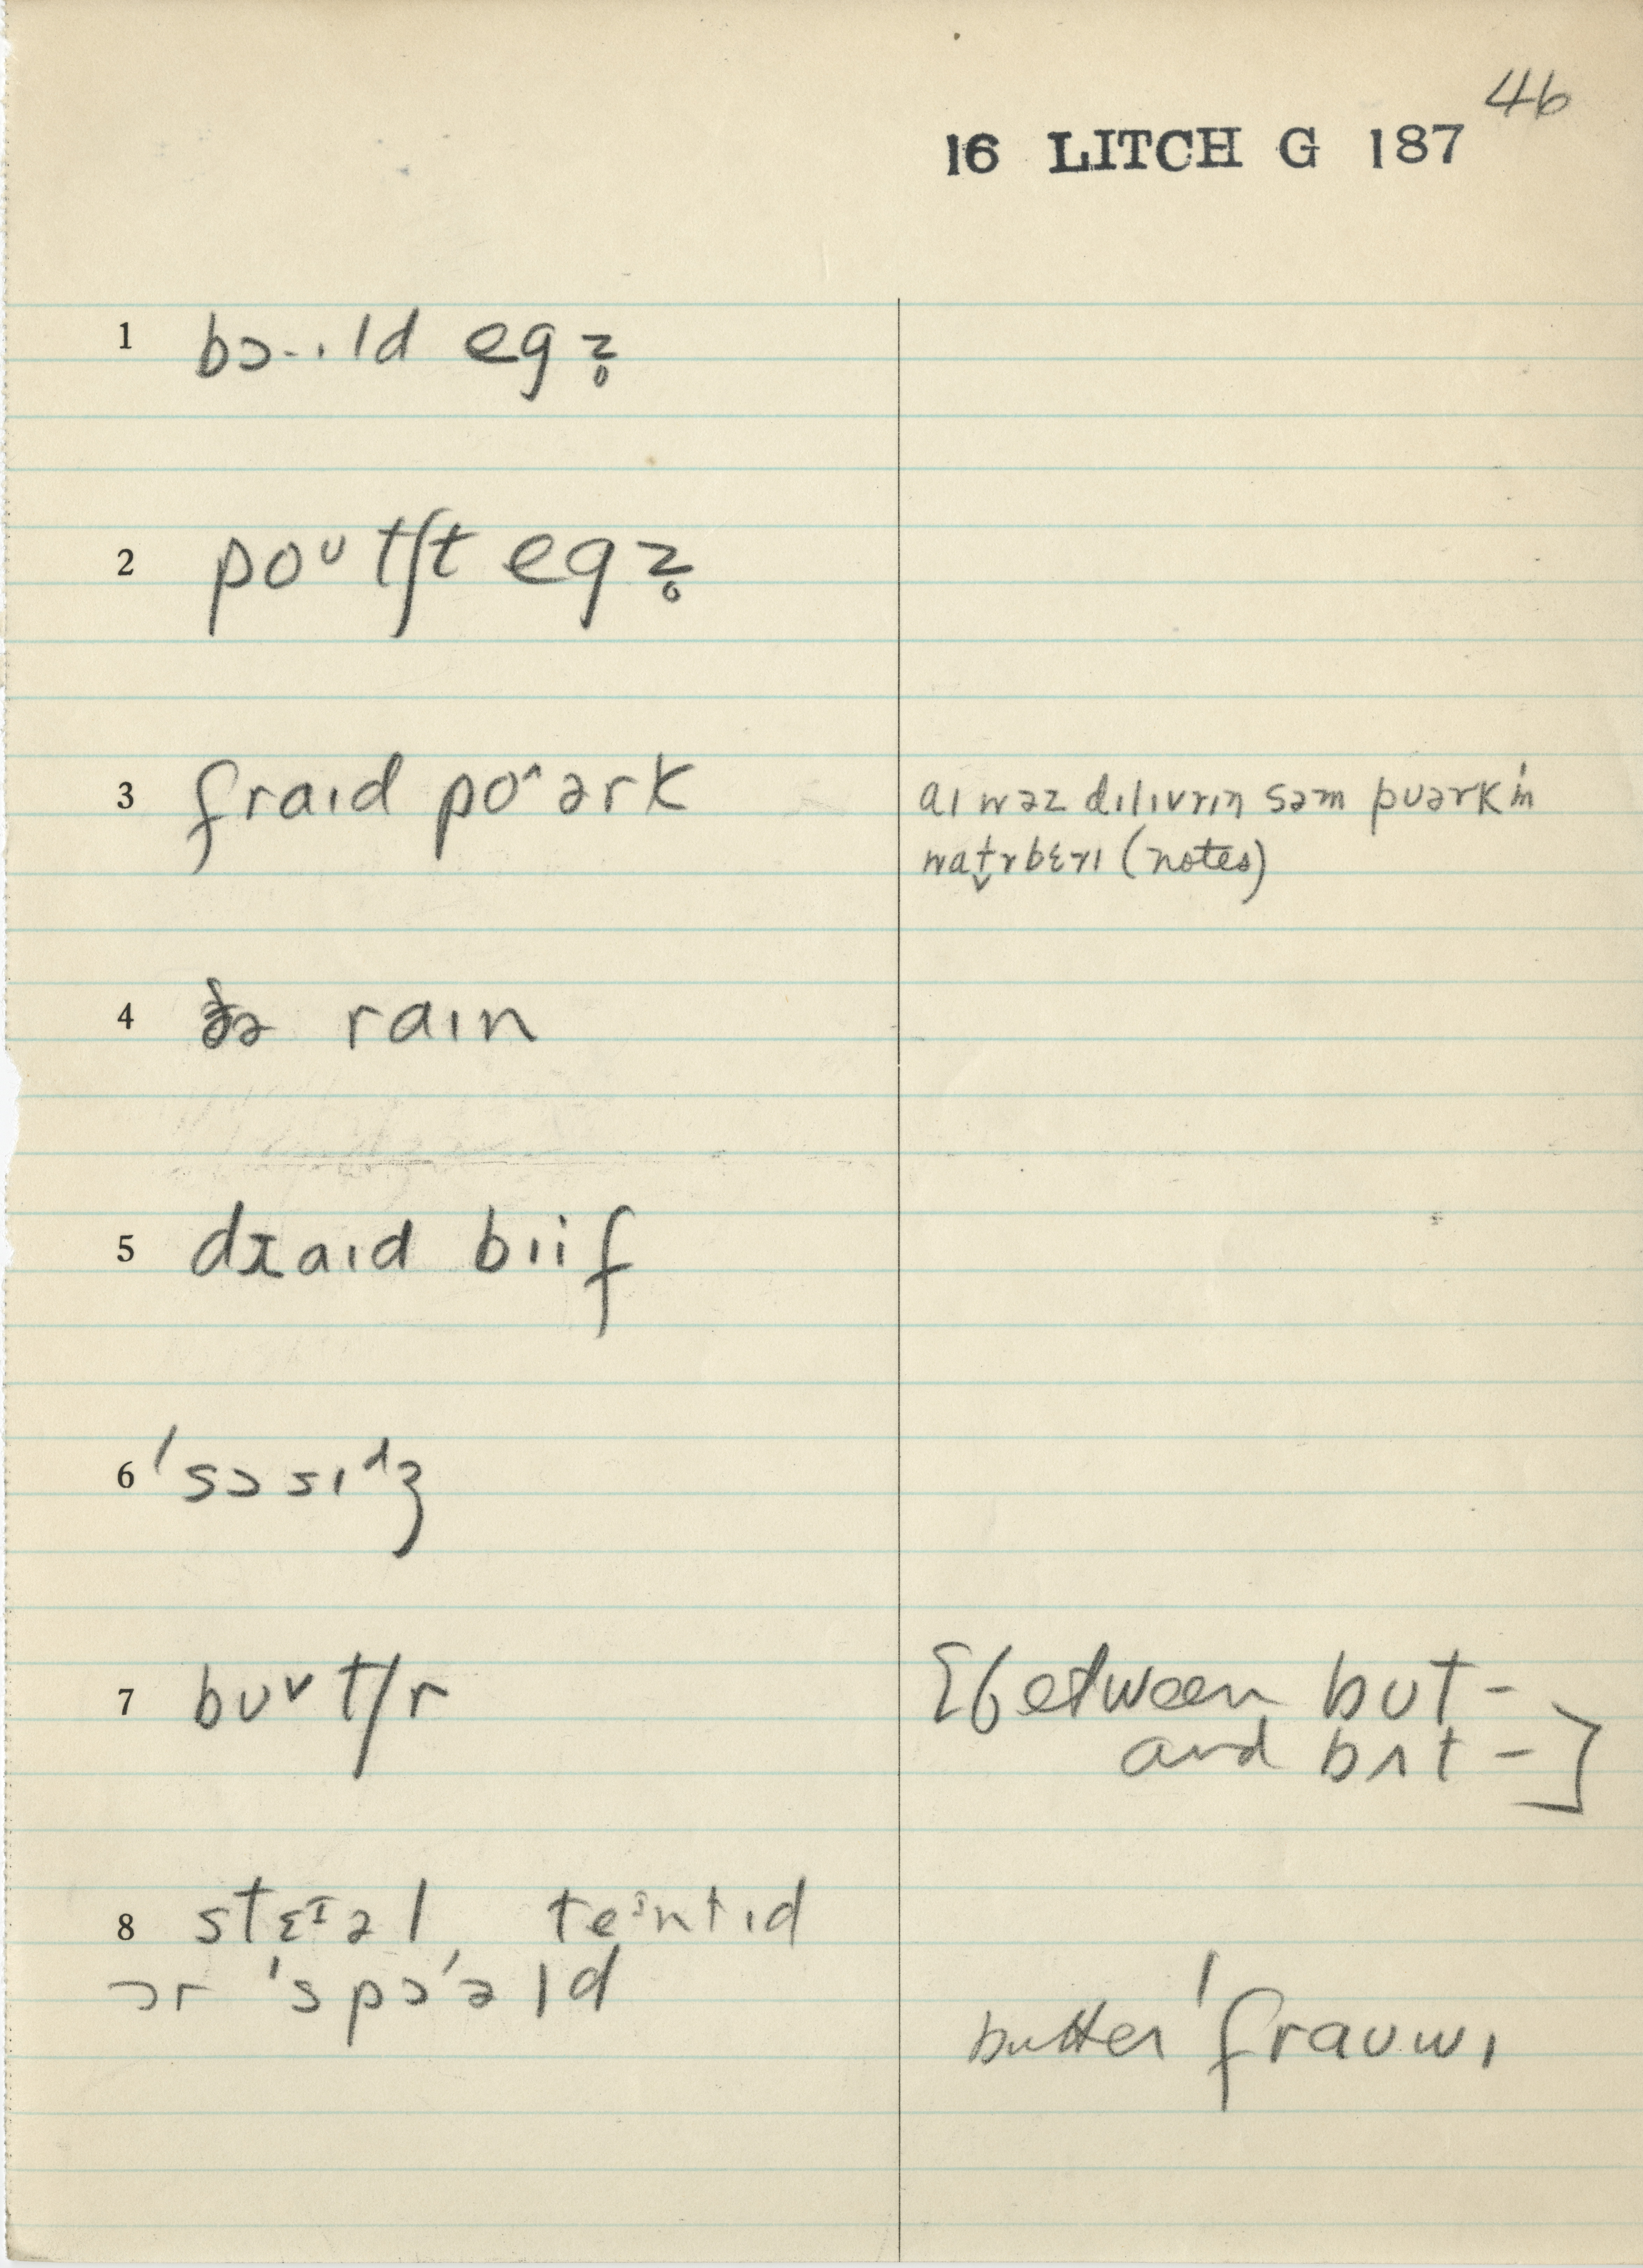 46
16 LITCH G 187
1 bɔ·ɪld egz̥
2 poᴜtʃt egz̥
3 fraɪd po^ərk
aɪ wəz dɪlɪvrɪŋ səm pʊərk ɪn
wat̬rbɛrɪ (notes)
4 ðə raɪn
5 draɪd biif
6 ˈsɔsɪdʒ
7 bʊ˅t/r
[between bʊt-
and bʌt-]
8 stɛɪəl teɪntɪd
ɔr ˈspɔˈəld
butter ˈfraʊwɪ